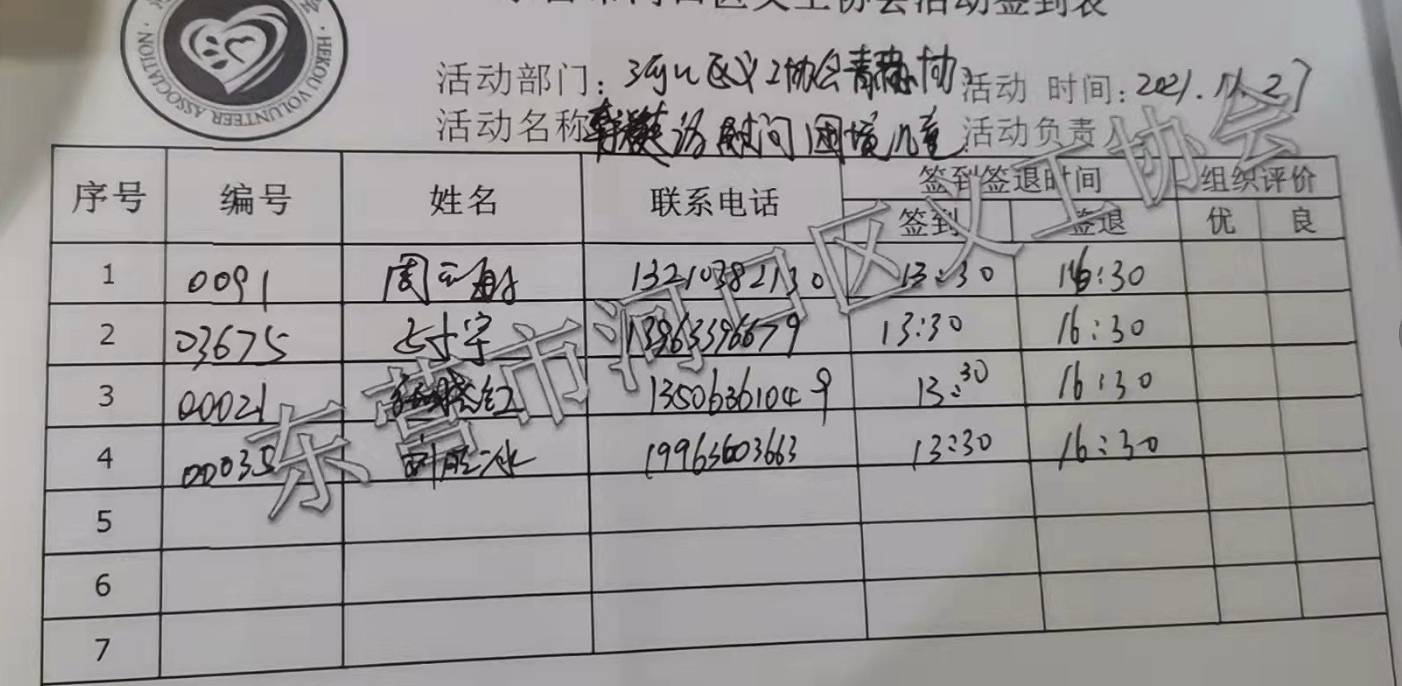 东营市河口区义工协会活动签到表
HEKOU VOLUNTEER ASSOCIATION
活动部门：河口区义工协会青 协 活动 时间：2021.11.27
活动名称 走访慰问困境儿童 活动负责人
序号 编号 姓名 联系电话 签到签退时间 组织评价
签到 签退 优 良
1 0091 周 13210382130 13:30 16:30
2 03675 宇 13963396679 13:30 16:30
3 00021 红 13506361049 13:30 16:30
4 00035 19963603663 13:30 16:30
5
6
7
东营市河口区义工协会